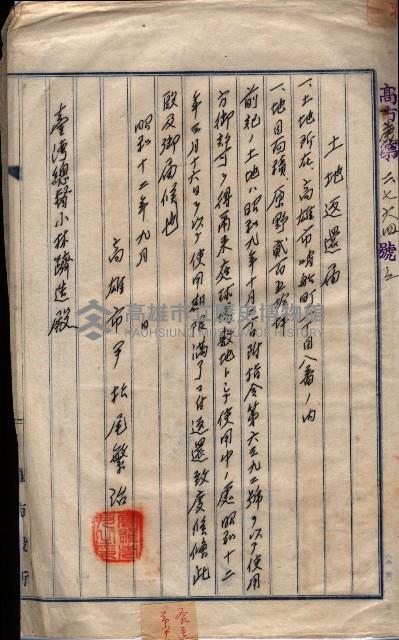 高市產第二七六四號ノ三
土地返還届
一、土地所在 高雄市哨船町 丁目八番ノ内
一、地目面積 原野貳百五拾坪
前記ノ土地ハ昭和九年十月 日附指令第六五九二號ヲ以テ使用
方御許可ヲ得爾来庭球敷地トシテ使用中ノ處昭和十二
年三月十六日ヲ以テ使用期限満了ニ付返還致度候條此
段及御届候也
昭和十二年九月 日
高雄市尹松尾繁治
臺灣總督小林躋造殿
高雄市立歷史博物館
KAOHSIUNG MUSEUM OF HISTORY